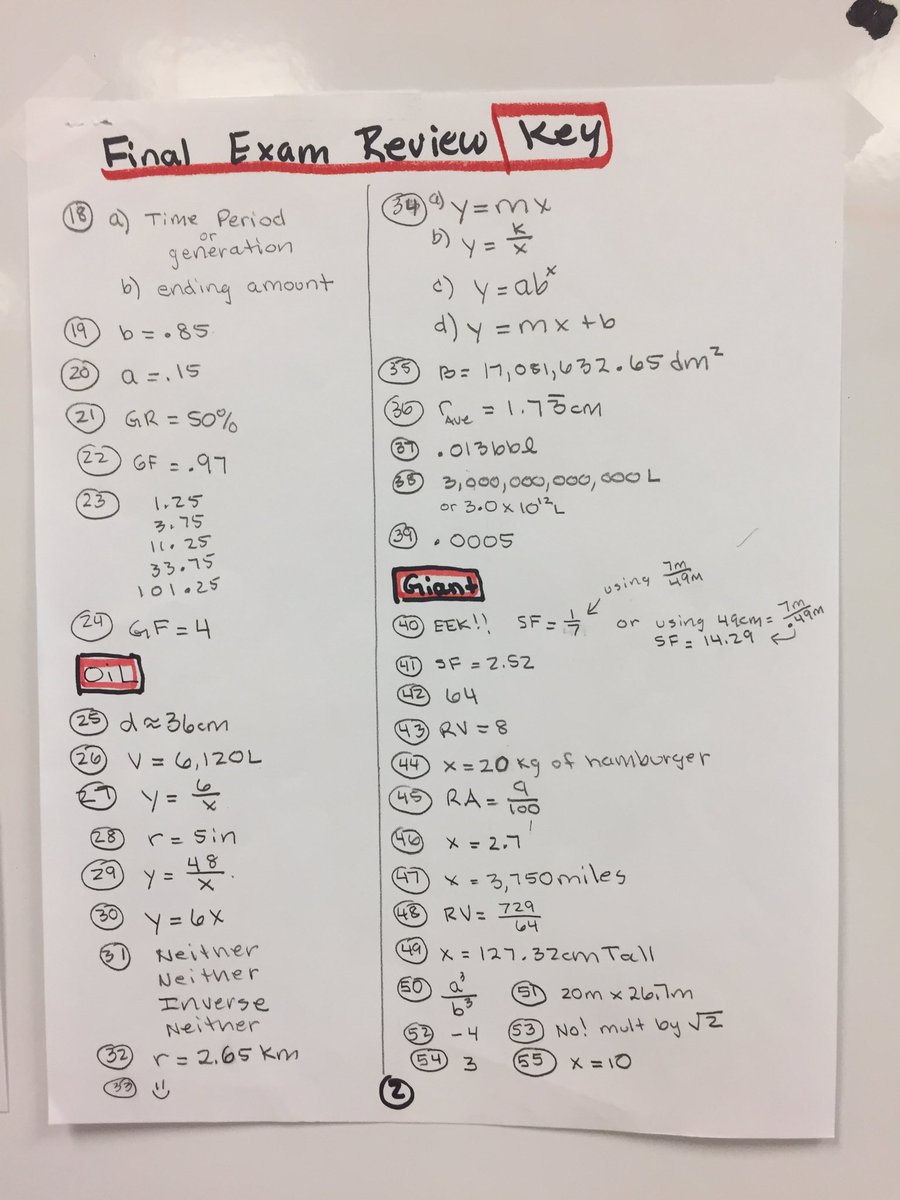 Final Exam Review Key
18 a) Time Period
or
generation
b) ending amount
19 b = .85
20 a = .15
21 GR = 50%
22 GF = .97
23 1.25
3.75
11.25
33.75
101.25
24 GF = 4
OiL
25 d ≈ 36cm
26 V = 6,120L
27 y = 6/x
28 r = 5in
29 y = 48/x
30 y = 6x
31 Neither
Neither
Inverse
Neither
32 r = 2.65 km
33 ☺
34 a) y = mx
b) y = k/x
c) y = abˣ
d) y = mx + b
35 B = 17,081,632.65 dm²
36 r AVE = 1.73̅ cm
37 .013bbl
38 3,000,000,000,000 L
or 3.0 x 10¹² L
39 .0005
Giant
using 7m/49m
40 EEK!! SF = 1/7 or using 49cm = 7m/.49m
SF = 14.29
41 SF = 2.52
42 64
43 RV = 8
44 x = 20 kg of hamburger
45 RA = 9/100
46 x = 2.7
47 x = 3,750 miles
48 RV = 729/64
49 x = 127.32cm Tall
50 a³/b³ 51 20m x 26.7m
52 -4 53 No! mult by √2
54 3 55 x = 10
2